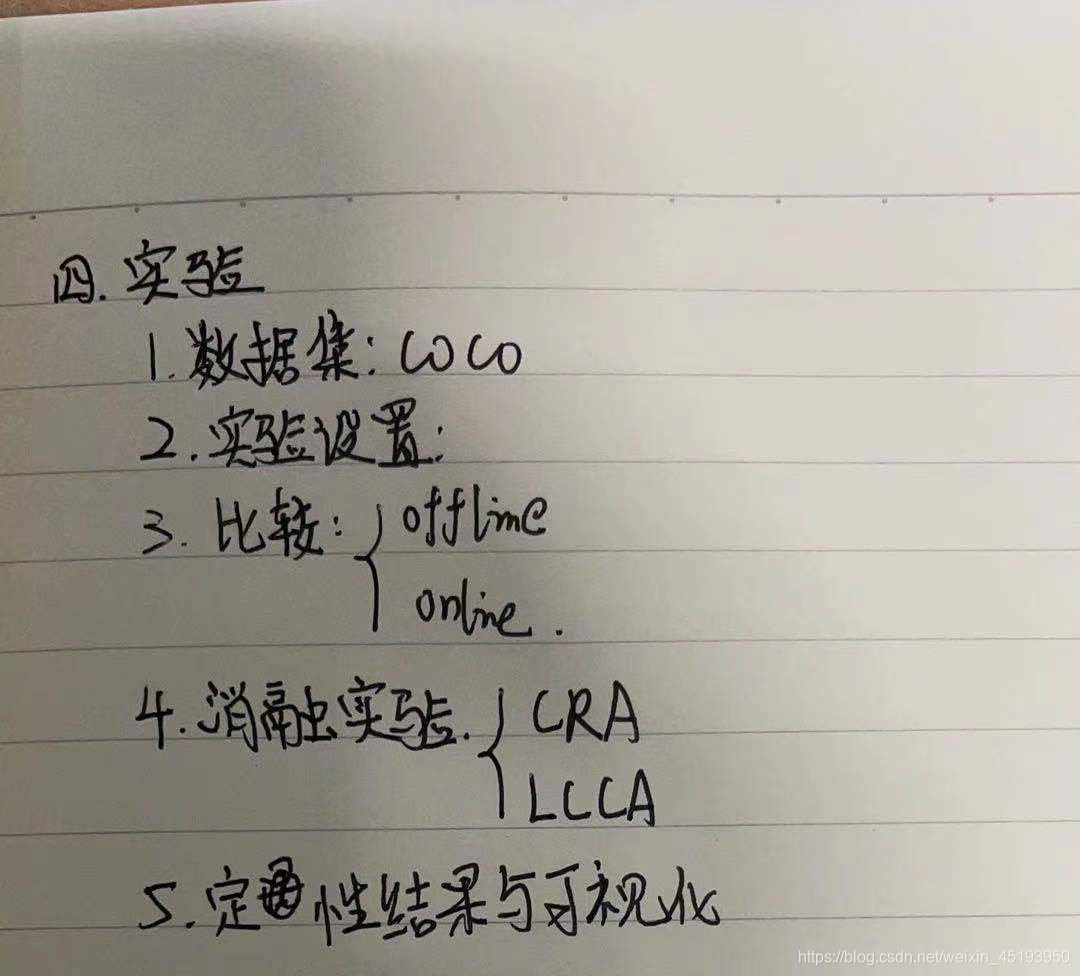 四.实验
1.数据集:COCO
2.实验设置:
3.比较:{offline
online.
4.消融实验.{CRA
LCCA
5.定性结果与可视化
https://blog.csdn.net/weixin_45193950